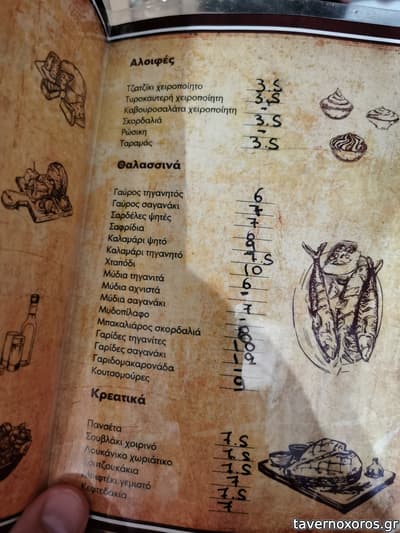 Αλοιφές
Τζατζίκι χειροποίητο 3.5
Τυροκαυτερή χειροποίητη 3.5
Καβουροσαλάτα χειροποίητη -
Σκορδαλιά 3.5
Ρώσικη -
Ταραμάς 3.5
Θαλασσινά
Γαύρος τηγανητός 6
Γαύρος σαγανάκι
Σαρδέλες ψητές 7
Σαφρίδια
Καλαμάρι ψητό
Καλαμάρι τηγανητό
Χταπόδι 10
Μύδια τηγανιτά 6
Μύδια αχνιστά
Μύδια σαγανάκι
Μυδοπίλαφο
Μπακαλιάρος σκορδαλιά
Γαρίδες τηγανίτες
Γαρίδες σαγανάκι
Γαριδομακαρονάδα
Κουτσομούρες
Κρεατικά
Πανσέτα 7.5
Σουβλάκι χοιρινό 7.5
Λουκάνικο χωριάτικο 7.5
7
γεμιστό 7.5
Κεφτεδάκια 7
tavernoxoros.gr